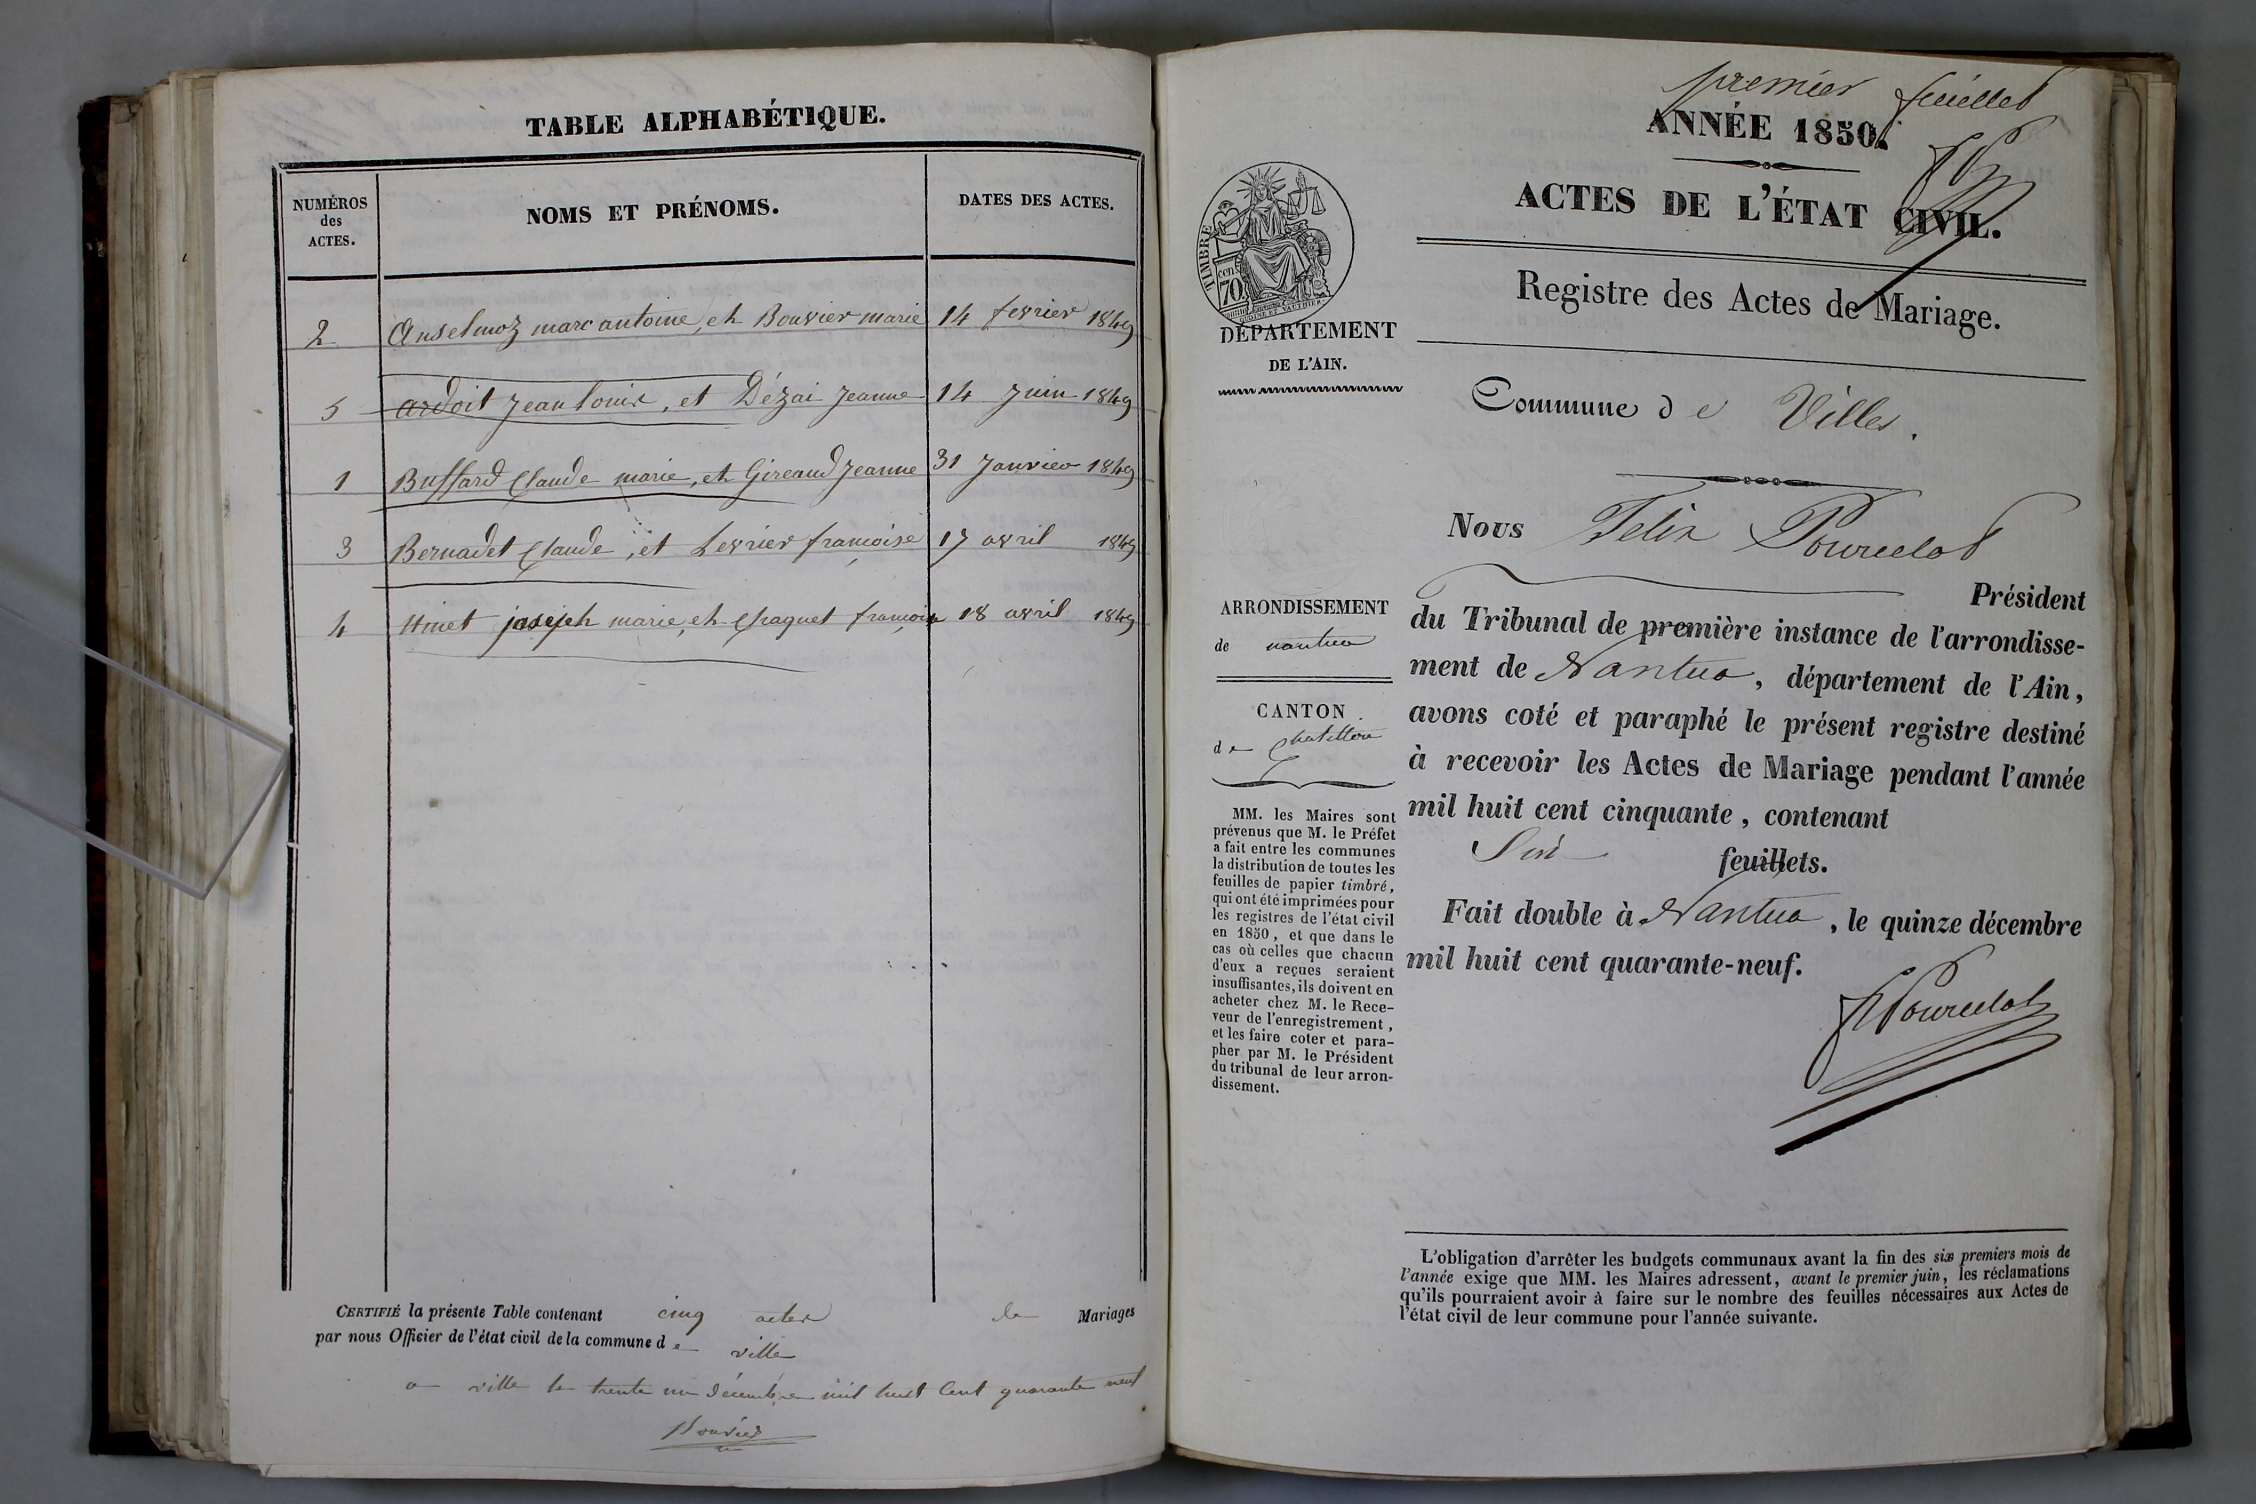 TABLE ALPHABÉTIQUE.
NUMÉROS
des
ACTES.
NOMS ET PRÉNOMS.
DATES DES ACTES.
2 Anselmoz marc antoine, et Bouvier marie 14 fevrier 1849
5 ardoit Jean louis, et Dézai Jeanne 14 Juin 1849
1 Buffard Claude marie, et Gireaud Jeanne 31 Janvier 1849
3 Bernadet Claude, et Levrier françoise 17 avril 1849
4 joseph marie, et Chaquet françoise 18 avril 1849
CERTIFIÉ la présente Table contenant cinq actes de Mariages
par nous Officier de l'état civil de la commune de ville
a ville le trente un décembre mil huit cent quarante neuf
Bouvier
premier feuillet
ANNÉE 1850.
ACTES DE L'ÉTAT CIVIL.
Registre des Actes de Mariage.
TIMBRE
70
cen
DÉPARTEMENT
DE L'AIN.
Commune de Villes.
Nous Felix Pourcelot
Président
du Tribunal de première instance de l'arrondisse-
ment de Nantua, département de l'Ain,
avons coté et paraphé le présent registre destiné
à recevoir les Actes de Mariage pendant l'année
mil huit cent cinquante, contenant
Six feuillets.
Fait double à Nantua, le quinze décembre
mil huit cent quarante-neuf.
Pourcelot
ARRONDISSEMENT
de nantua
CANTON
de Chatillon
MM. les Maires sont
prévenus que M. le Préfet
a fait entre les communes
la distribution de toutes les
feuilles de papier timbré,
qui ont été imprimées pour
les registres de l'état civil
en 1850, et que dans le
cas où celles que chacun
d'eux a reçues seraient
insuffisantes, ils doivent en
acheter chez M. le Rece-
veur de l'enregistrement,
et les faire coter et para-
pher par M. le Président
du tribunal de leur arron-
dissement.
L'obligation d'arrêter les budgets communaux avant la fin des six premiers mois de
l'année exige que MM. les Maires adressent, avant le premier juin, les réclamations
qu'ils pourraient avoir à faire sur le nombre des feuilles nécessaires aux Actes de
l'état civil de leur commune pour l'année suivante.